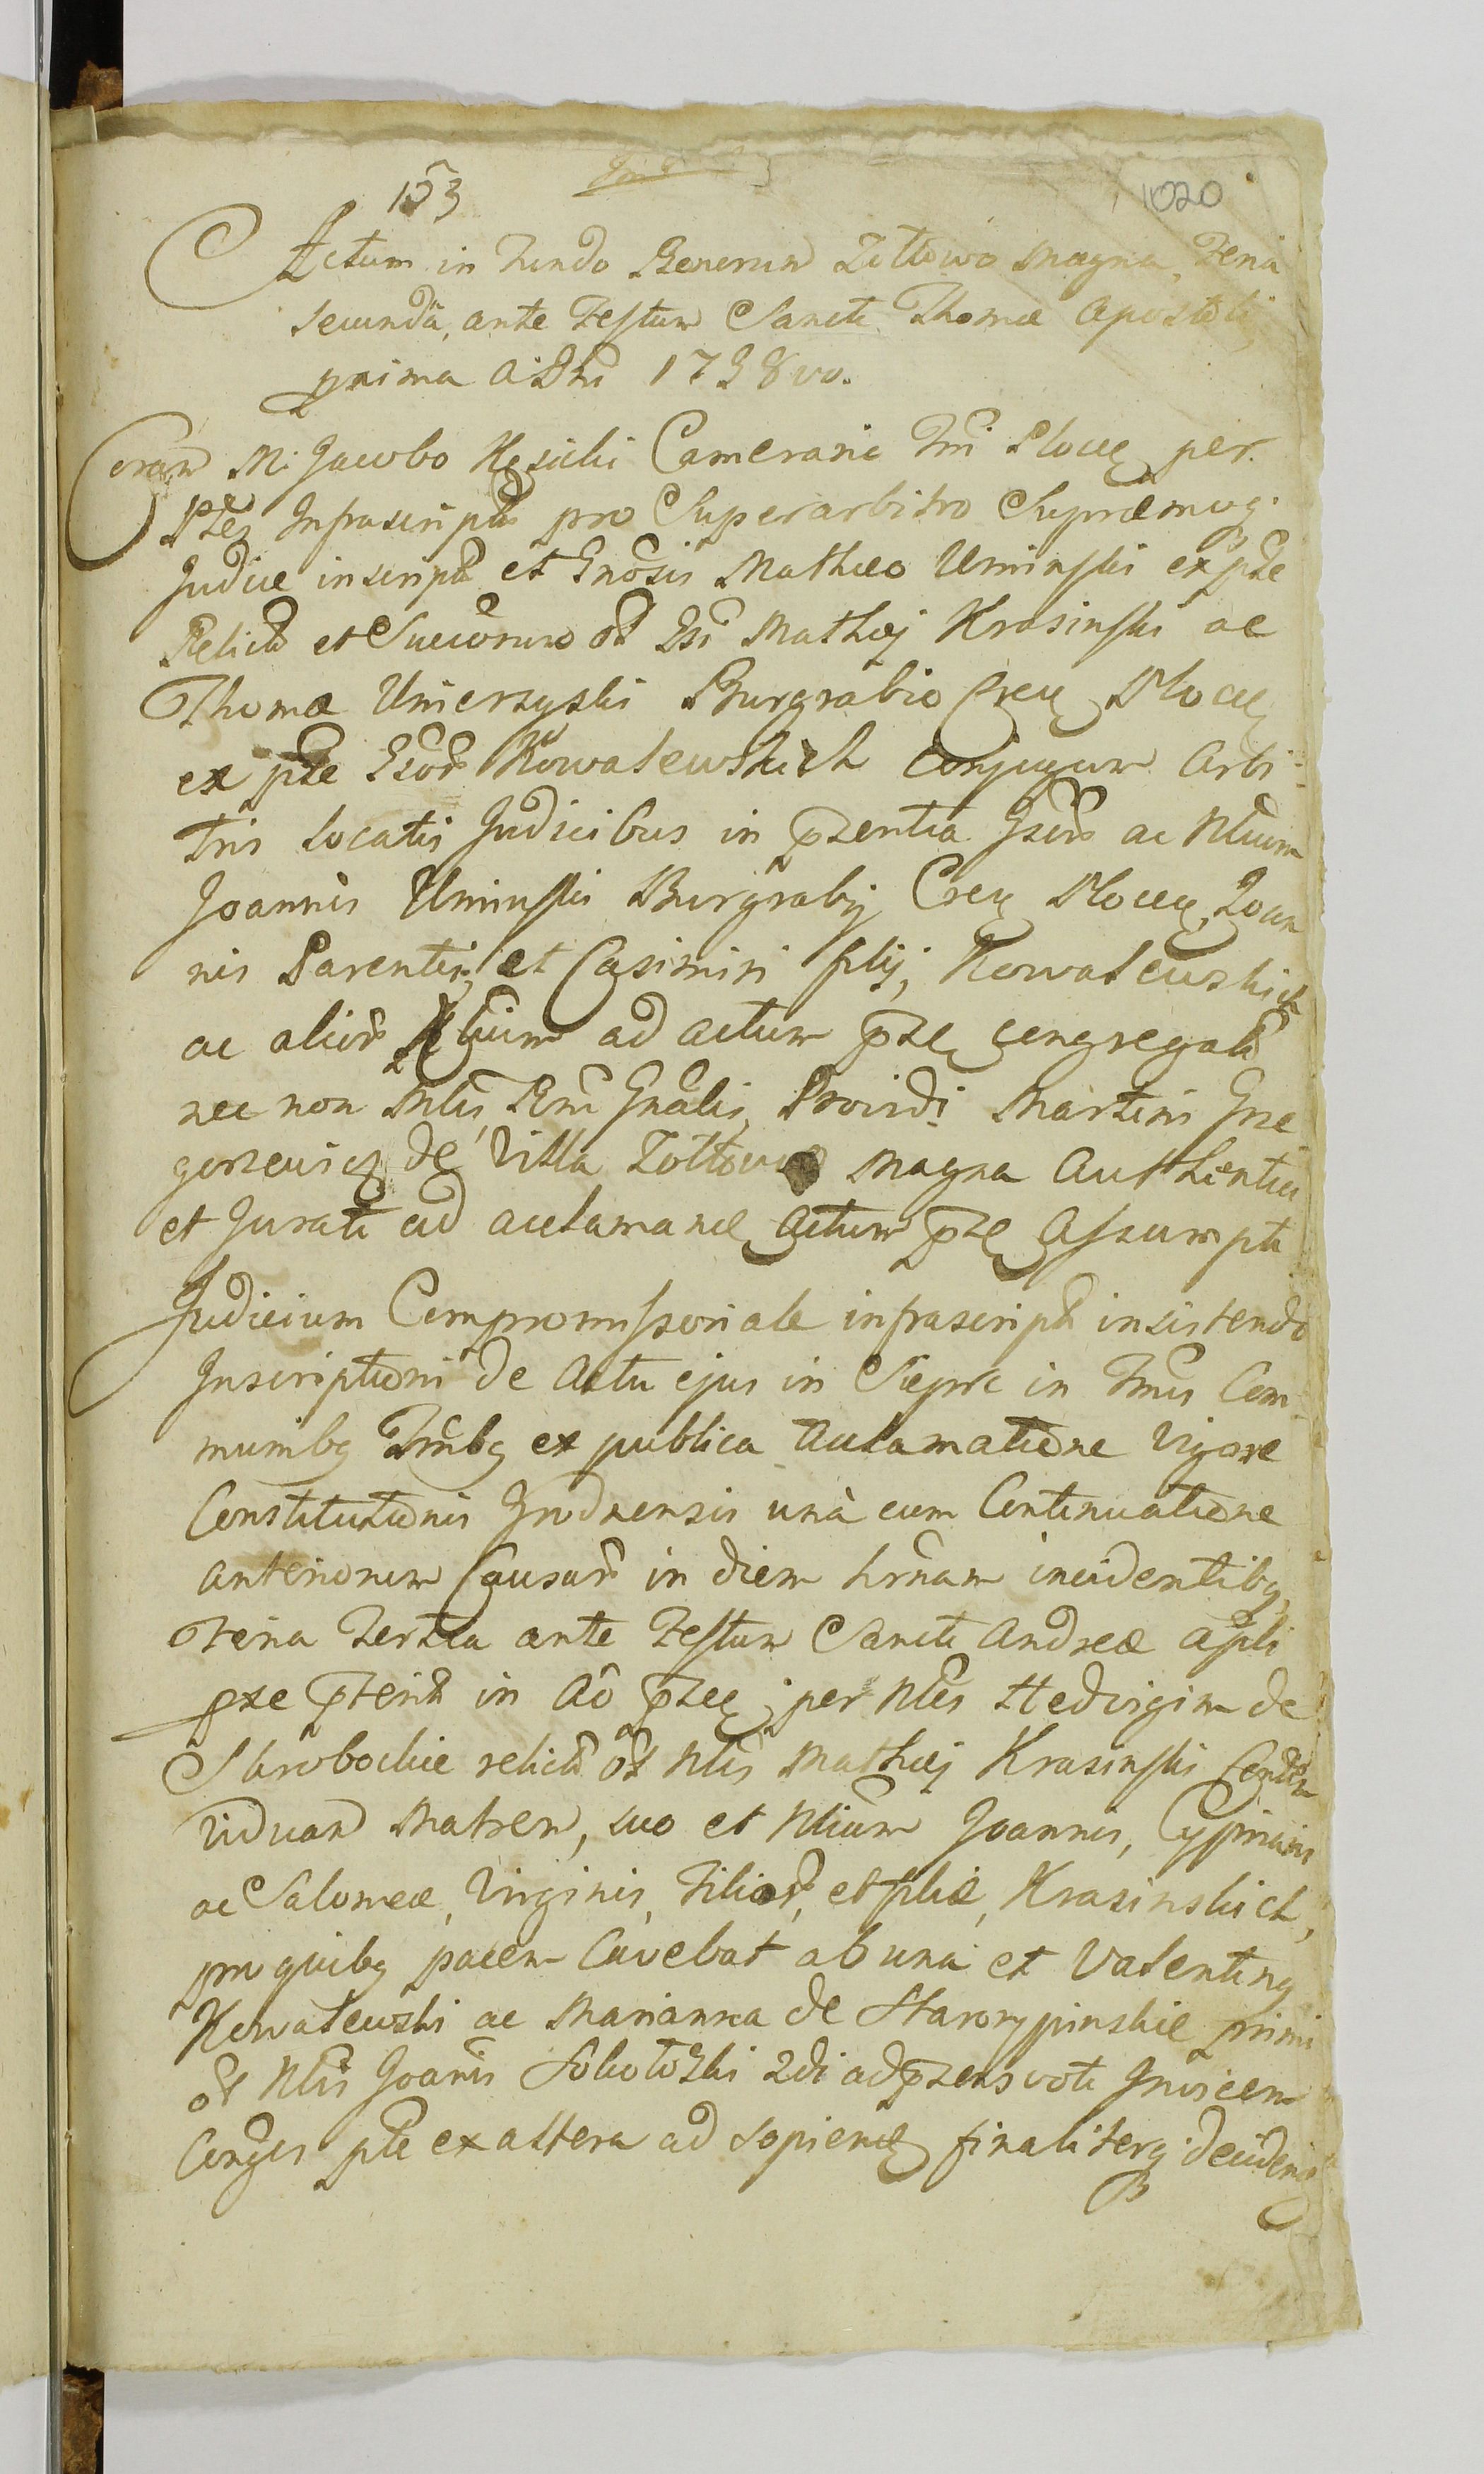 153
1020
Actum in Fundo Bonorum Zottowo Magna, Feria
secundà, ante Festum Sancti Thomæ Apostoli
pxima A Dni 1738vo.
Coram M. Jacobo Camerario Tri Ploceñ per
Ptes Infrascript pro Superarbitro Supræmoq
Judice inscripto et Gnosis Mathæo Uminski ex pte
Relictæ et Succorum ol Gsi Mathæj Krasinski ac
Thomæ Umierzyski Burgrabio Cren Plocen
ex pte Gsor Kowalewskich Conjugum Arbi-
tris locatis Judicibus in pzentia Gsor ac Nlium
Joannis Uminski Burgrabij Cren Plocen, Joan
nis Parentis, et Casimiri filij, Kowalewskich
ac alior Nlium ad actum pze congregat
nec non Mlis Rni Gnalis, Providi Martini Grze
gorzewicz de Villa Zottowo Magna Authentici
et Jurati ad acclamand actum pze Assumpti
Judicium Compromissoriale infrascript insistendo
Inscriptioni de Actu ejus in Sieprc in Tnis Com-
munibq Trnibq ex publica acclamatione Vigore
Constitutionis Grodnensis unà cum Continuatione
anteriorum Causar in diem hrnam incidentibq
Feria Tertia ante Festum Sancti Andreæ Apli
pxe pterit in Aô pzen per Nles Hedvigim de
Skrobockie relict ol Nlis Mathæj Krasinski Conthm
viduam Matrem, suo et Nlium Joannis, Cypriani
ac Salomeæ, Virginis, Filior, et filiæ, Krasinskich,
pro quibq pacem Cavebat ab una et Valentinq
Kowalewski ac Marianna de Starorypinskie primi
ol Nlis Joanis Sokołoski 2di ad pzens voti Invicem
Conges pte ex altera ad sopiend finaliterq decidend